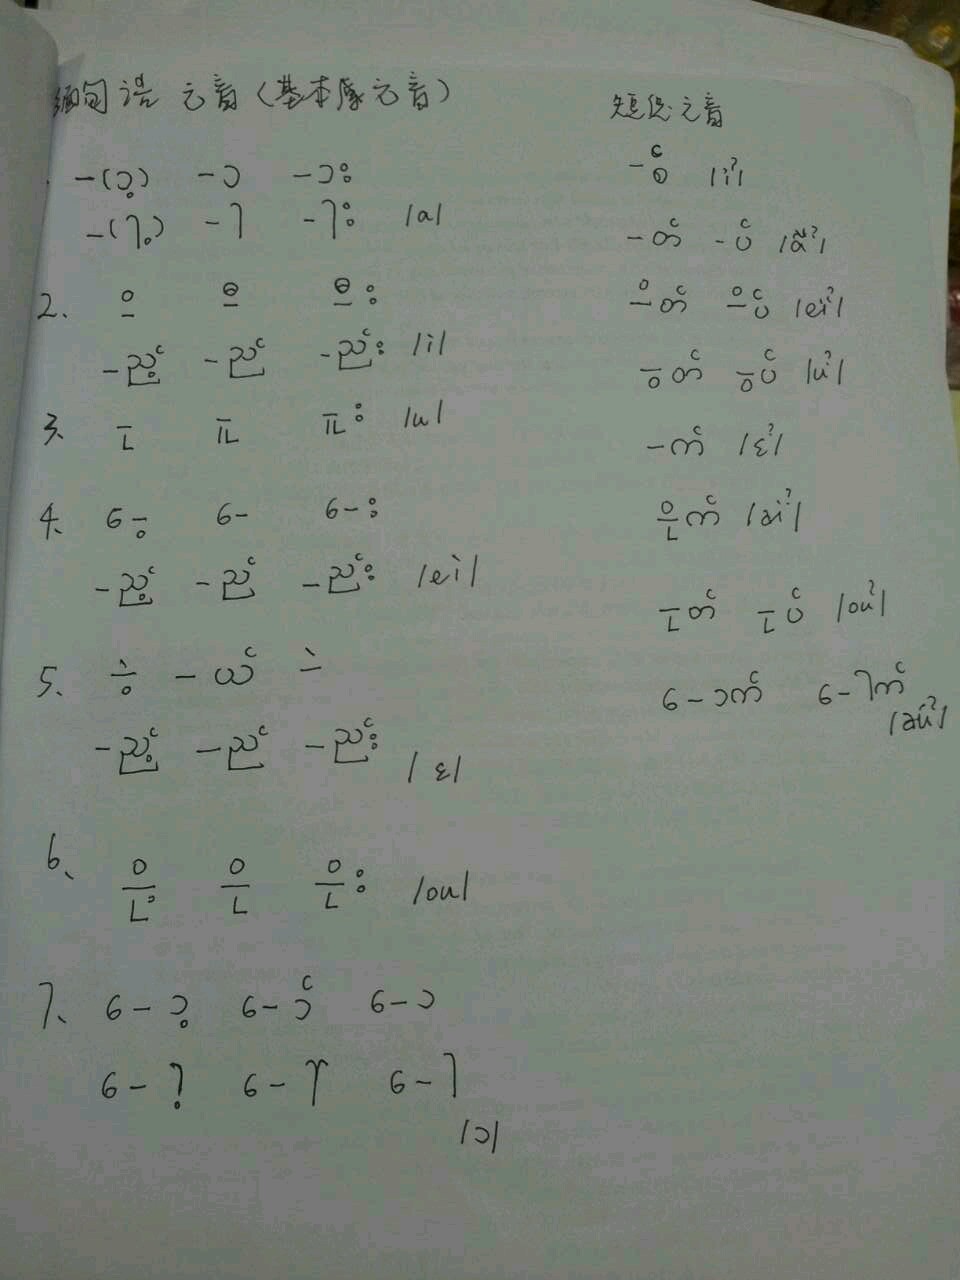 缅甸语 元音(基本原元音)
1. -(ာ့) -ာ -ား
-(ါ့) -ါ -ါး /a/
2、 -ိ -ီ -ီး
-ည့် -ည် -ည်း /i/
3、 -ု -ူ -ူး /u/
4、 ေ-့ ေ- ေ-း
-ည့် -ည် -ည်း /ei/
5、 -ဲ့ -ယ် -ဲ
-ည့် -ည် -ည်း /ɛ/
6、 -ို့ -ို -ိုး /ou/
7、 ေ-ာ့ ေ-ာ် ေ-ာ
ေ-ါ့ ေ-ါ် ေ-ါ
/ɔ/
短促元音
-စ် /iʔ/
-တ် -ပ် /ãʔ/
-ိတ် -ိပ် /eiʔ/
-ွတ် -ွပ် /uʔ/
-က် /ɛʔ/
-ိုက် /aiʔ/
-ုတ် -ုပ် /ouʔ/
ေ-ာက် ေ-ါက်
/auʔ/